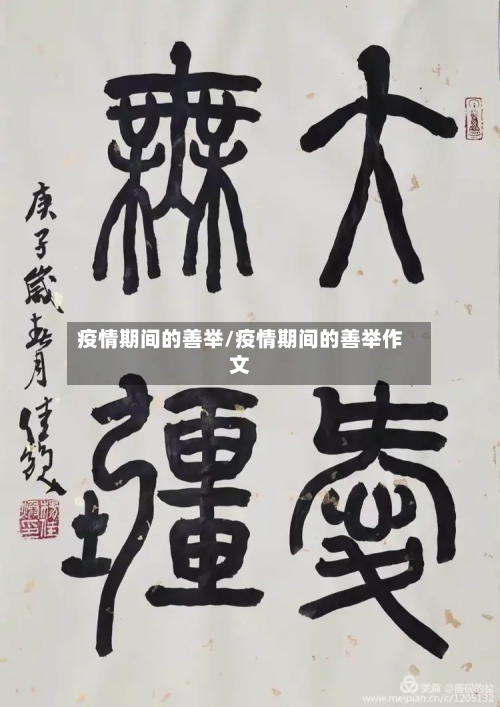 大愛
無疆
庚子歲春月
疫情期间的善举/疫情期间的善举作
文
美篇
www.meipian.cn/c/1205132